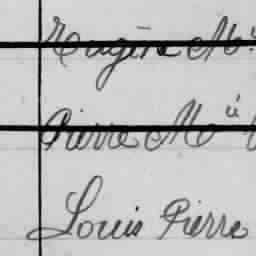 Eugène M
Pierre Mie
Louis Pierre